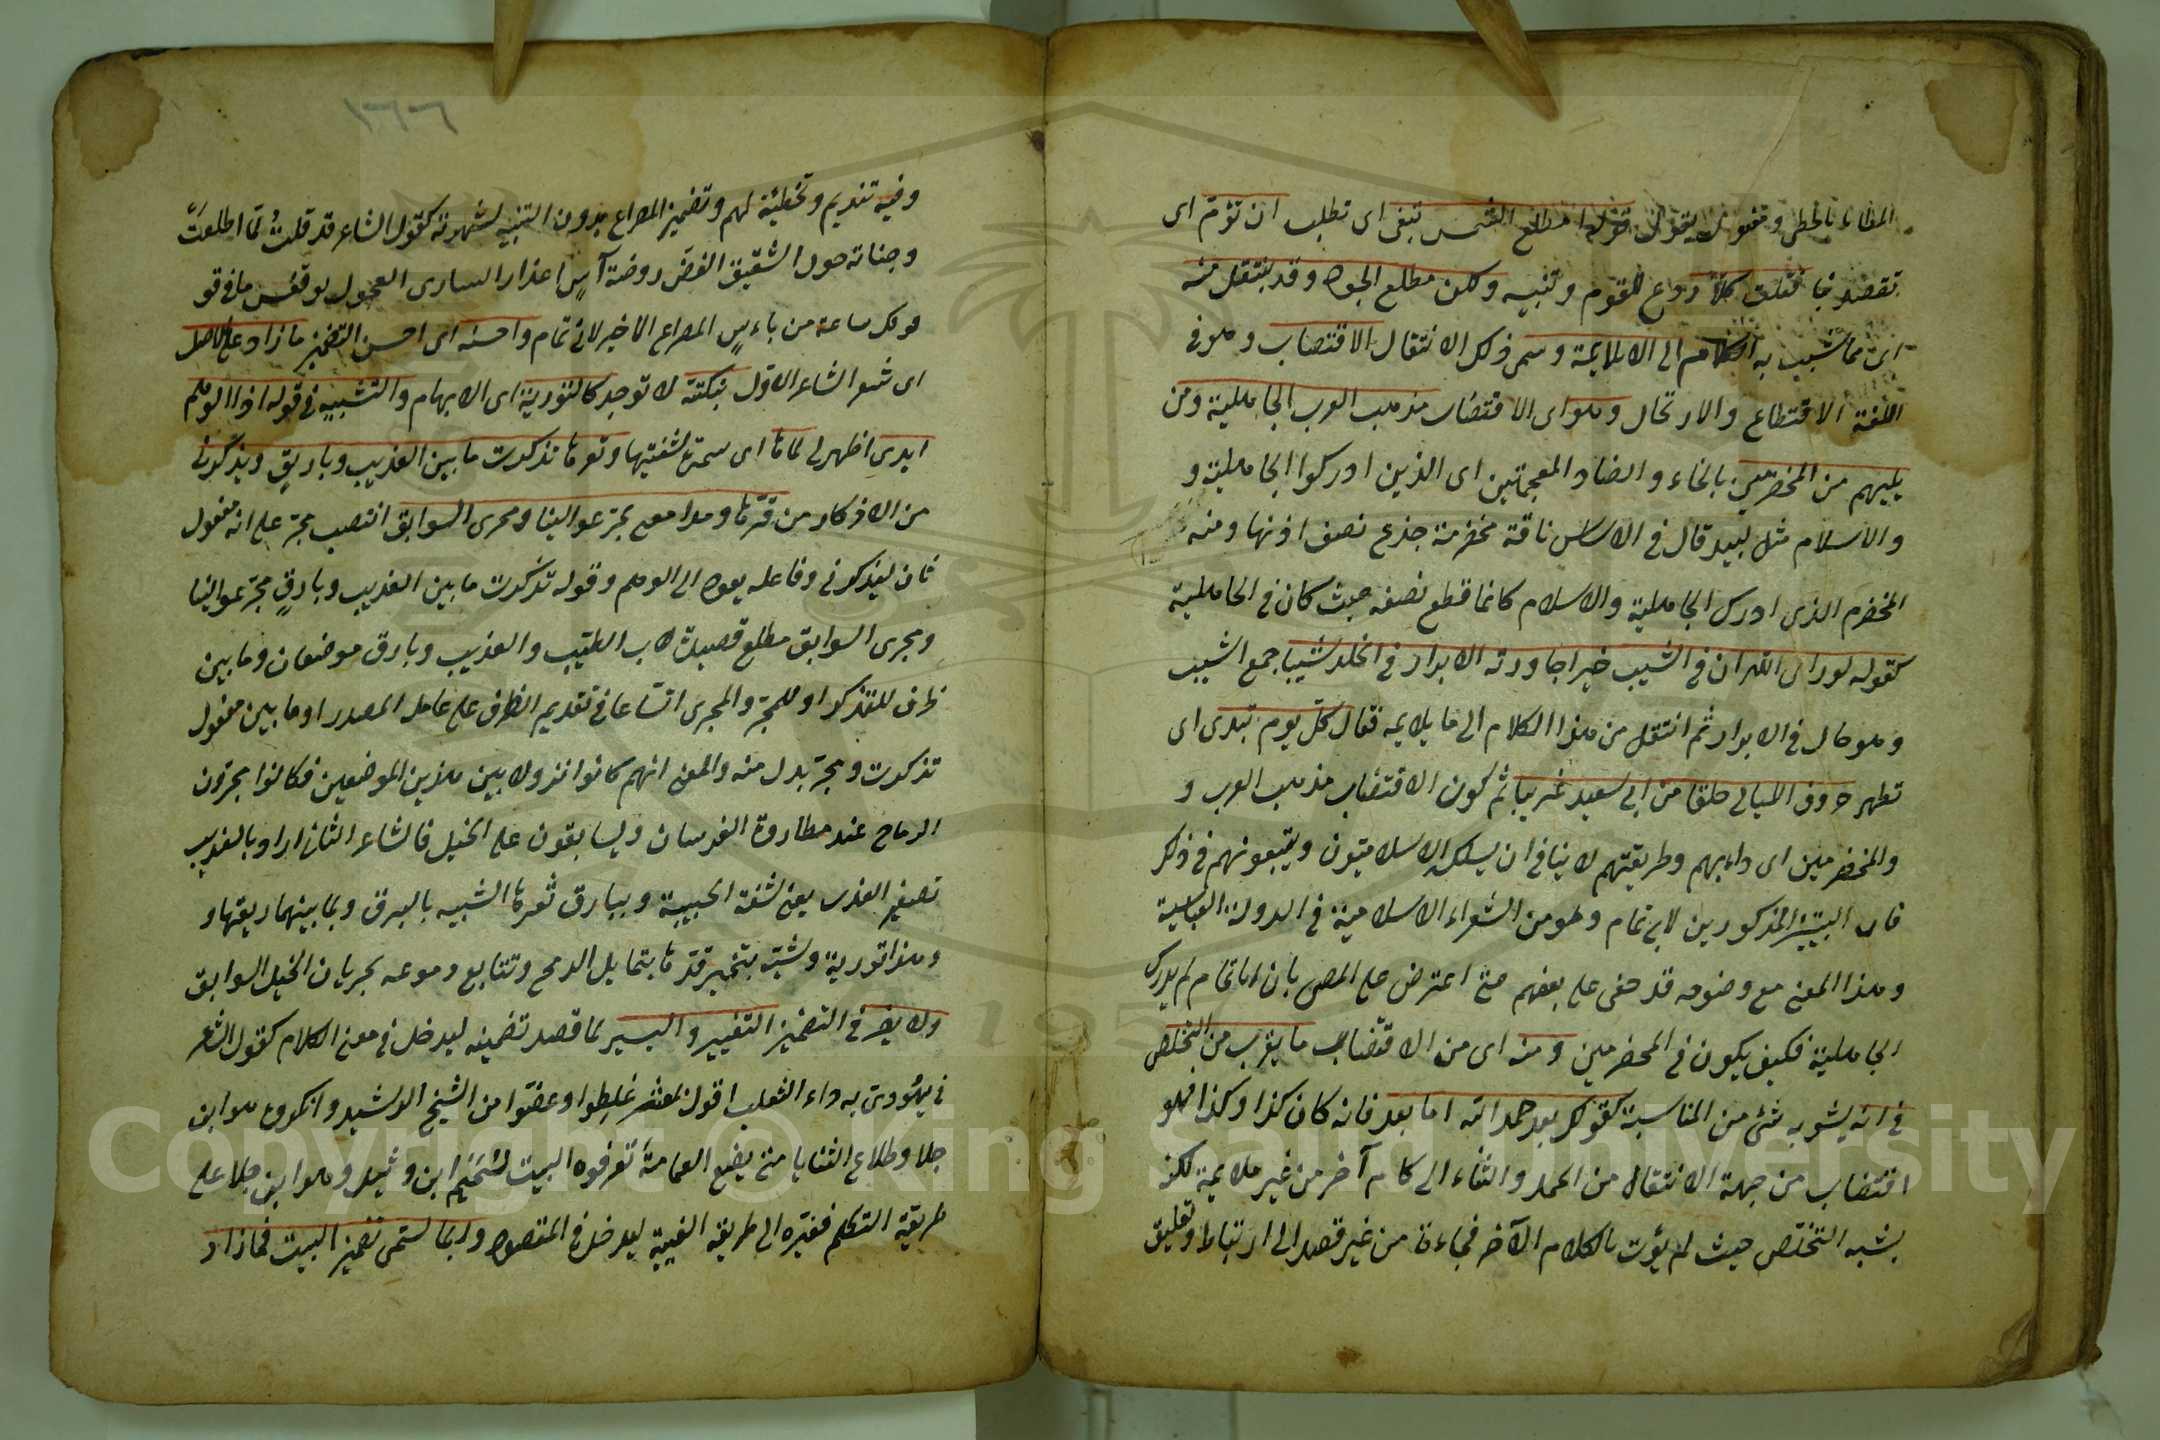 المطايا بالخطى ومفعول يقول قوله امطلع الشمس تبغى اى تطلب ان تؤم اى
تقصد بنا فقلت كلا ردع للقوم وتنبيه ولكن مطلع الجود وقد ينتقل منه
اى مما شبب به الكلام الى الا يلايمه وسمى ذلك الانتقال الاقتضاب وهو فى
اللغة الاقتطاع والارتحال وهو اى الاقتضاب مذهب العرب الجاهلية ومن
يليهم من المخضرمين بالخاء والضاد المعجمتين اى الذين ادركوا الجاهلية و
والاسلام مثل لبيد قال فى الاساس ناقة مخضرمة جذع نصف اذنها ومنه
المخضرم الذى ادرك الجاهلية والاسلام كانما قطع نصفه حيث كان فى الجاهلية
كقوله لو راى الله ان فى الشيب خيرا جاورته الابرار فى الخلد شيبا جمع اشيب
وهو حال فى الابرار ثم انتقل من هذا الكلام الى ما يلايمه فقال كل يوم تبدى اى
تظهر صروف الليالى خلقا من ابى سعيد غريبا ثم كون الاقتضاب مذهب العرب و
والمخضرمين اى دابهم وطريقتهم لا ينافى ان يسلك الاسلاميون ويتبعونهم فى ذلك
فان البيتين المذكورين لابى تمام وهو من الشعراء الاسلامية فى الدولة العباسية
وهذا المعنى مع وضوحه قد خفى على بعضهم حتى اعترض على المص بان ابا تمام لم يدرك
الجاهلية فكيف يكون فى المخضرمين ومنه اى من الاقتضاب ما يقرب من التخلص
فى انه يشوبه شئ من المناسبة كقولك بعد حمد الله اما بعد فانه كان كذا وكذا فهو
اقتضاب من جهة الانتقال من الحمد والثناء الى كلام آخر من غير ملايمة لكنه
يشبه التخلص حيث لم يؤت بالكلام الآخر فجاءة من غير قصد الى ارتباط وتعليق
١٦٦
وفيه تنديم وتخطئة لهم وتضمين المصراع بدون التنبيه لشهرته كقول الشاعر قد قلت لما اطلعت
وجناته حول الشقيق الغض روضة آس اعذاره السارى العجول توقف ما فى وقو
فوفك ساعة من باءس المصراع الاخير لابى تمام واحسنه اى احسن التضمين ما زاد على الاصل
اى شعر الشاعر الاول بنكتة لا توجد كالتورية اى الابهام والتشبيه فى قوله اذا الوهم
ابدى اظهر لى لماها اى سمرة شفتيها وثغرها تذكرت ما بين العذيب وبارق ويذكرنى
من الاذكار من قدها ومدامعى مجر عوالينا ومجرى السوابق انتصب مجر على انه مفعول
ثان ليذكرنى وفاعله يعود الى الوهم وقوله تذكرت ما بين العذيب وبارق مجر عوالينا
ومجرى السوابق مطلع قصيدة لابى الطيب والعذيب وبارق موضعان وما بين
ظرف للتذكر او للمجر والمجرى اتساعا فى تقديم الظرف على عامله المصدر او ما بين مفعول
تذكرت ومجر بدل منه والمعنى انهم كانوا نزولا بين هذين الموضعين فكانوا يجرون
الرماح عند مطاردة الفرسان ويسابقون على الخيل فالشاعر الثانى اراد بالعذيب
تصغير العذب يعنى شفة الحبيبة وببارق ثغرها الشبيه بالبرق وبما بينهما ريقها و
وهذا تورية وشبه تبختر قدها بتمايل الرمح وتتابع دموعه بجريان الخيل السوابق
ولا يضر فى التضمين التغيير اليسير لما قصد تضمينه ليدخل فى معنى الكلام كقول الشاعر
فى يهودى به داء الثعلب اقول لمعشر غلطوا وغضوا من الشيخ الرشيد وانكروه هو ابن
جلا وطلاع الثنايا متى يضع العمامة تعرفوه البيت لسحيم ابن وثيل وهو ابن جلا على
طريقة التكلم فغيره الى طريقة الغيبة ليدخل فى المقصود وربما سمى تضمين البيت فما زاد
Copyright © King Saud University
1957